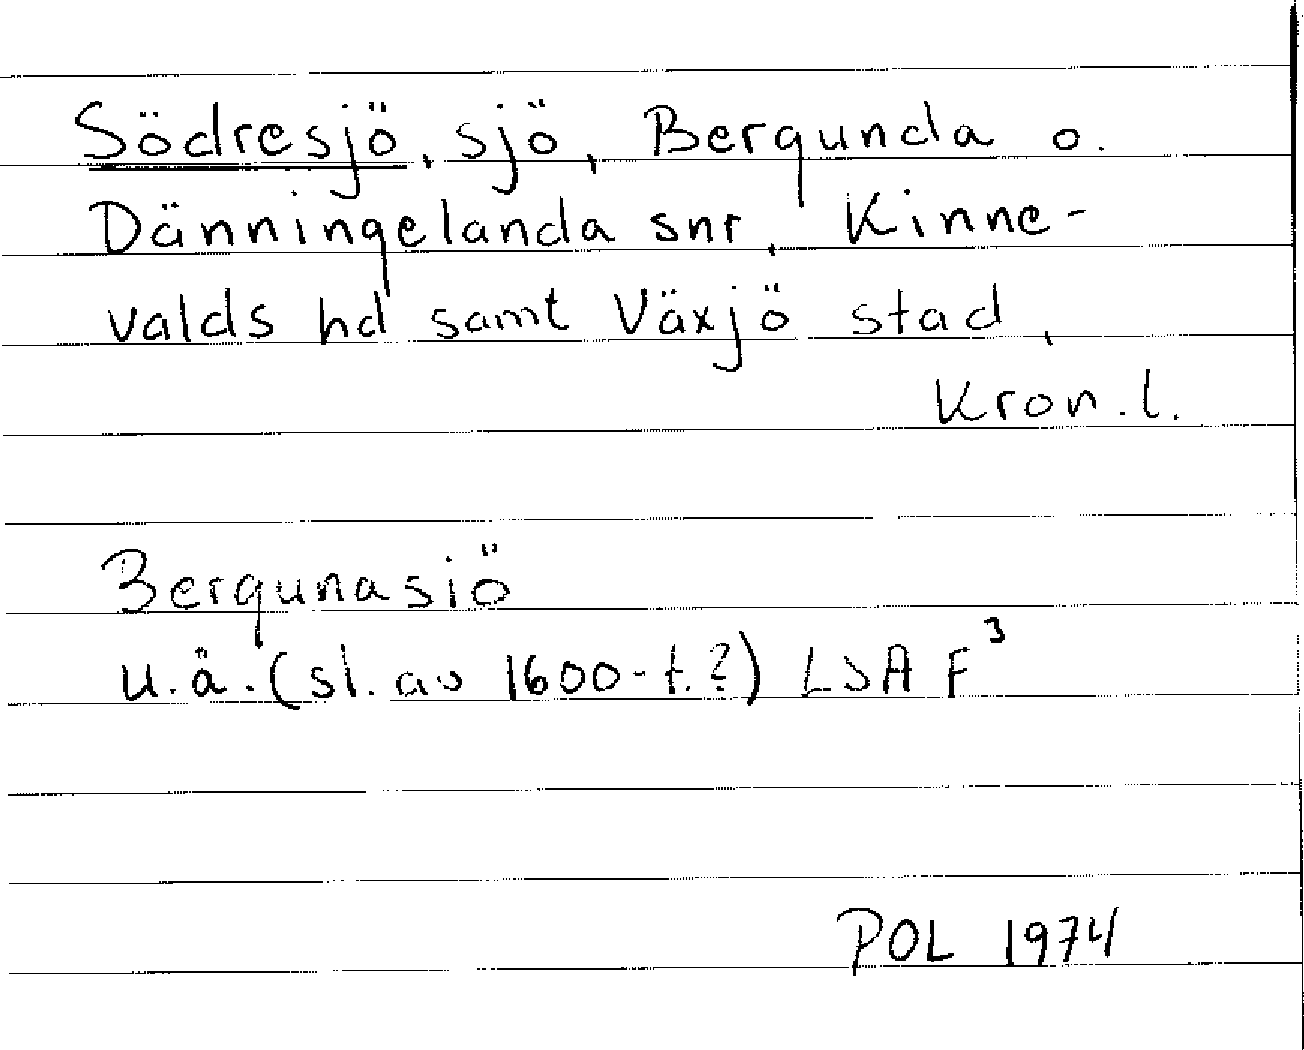 Södresjö, sjö, Bergunda o.
Dänningelanda snr, Kinne-
valds hd samt Växjö stad,
Kron. l.
Bergunasiö
u.å. (sl. av 1600-t.?) LSA F³
POL 1974